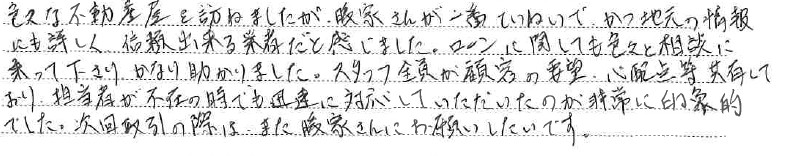 色々な不動産屋を訪ねましたが、暖家さんが一番ていねいで、かつ地元の情報
にも詳しく信頼出来る業者だと感じました。ローンに関しても色々と相談に
乗って下さり、かなり助かりました。スタッフ全員が顧客の要望、心配点等共有して
おり、担当者が不在の時でも迅速に対応していただいたのが非常に印象的
でした。次回取引の際は、また暖家さんにお願いしたいです。